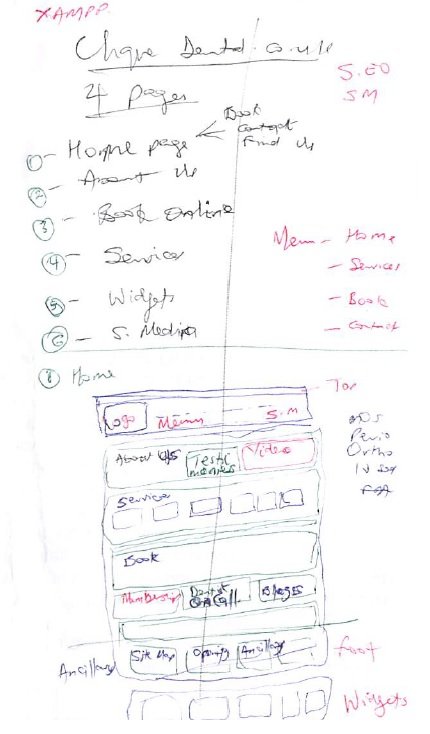 XAMPP
Chque Dental.co.uk
4 pages
S.EO
SM
Book
Contact
Find Us
1 - Home page
2 - About Us
3 - Book Online
4 - Service
5 - Widgets
6 - S. Media
Menu - Home
- Services
- Book
- Contact
Home
Top
Logo Menu S.M
About US Testimonies Video
Perio
Ortho
Service
Book
Membership Dentist on Call Blogs
Site Map Opening Ancillary
Ancillary
Foot
Widgets